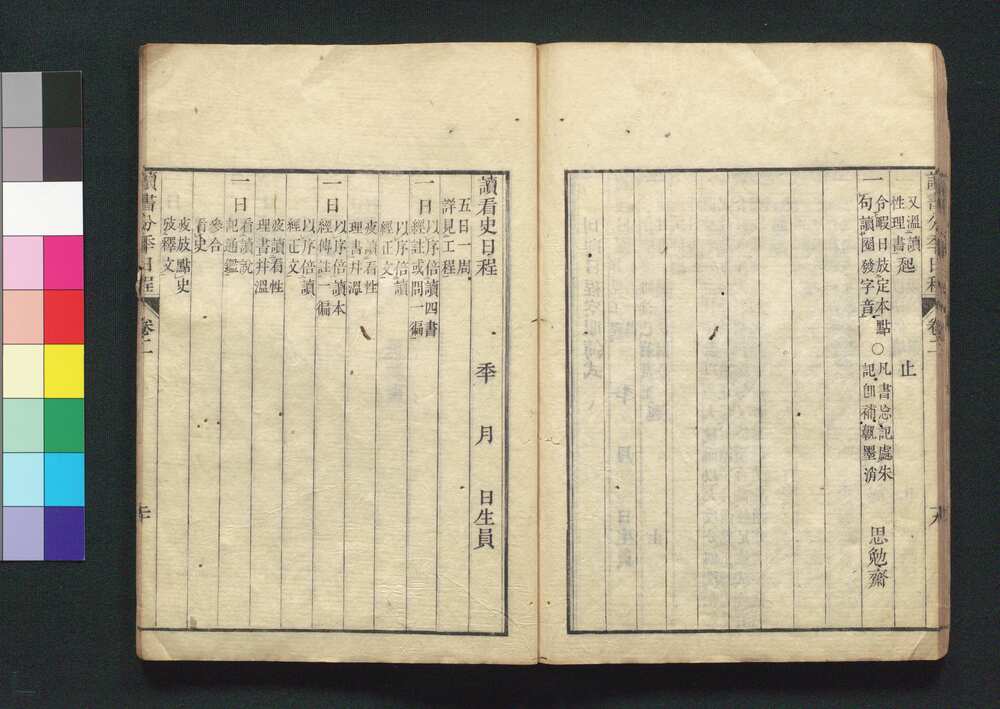 讀書分秊日程 卷二
又溫讀
性理書 起 止
一 令暇日放定本點
句讀圈發字音 ○ 凡書忘記處朱
記卽補 墨消
思勉齋
讀看史日程 秊 月 日生員
五日一周
詳見工程
一日 以序倍讀四書
經註或問一徧
以序倍讀
經正文
夜讀看性
理書幷溫
一日 以序倍讀本
經傳註一徧
以序倍讀
經正文
夜讀看性
理書幷溫
一日 看讀說
記通鑑
參合
看史
夜放點史
放釋文
讀書分秊日程 卷二